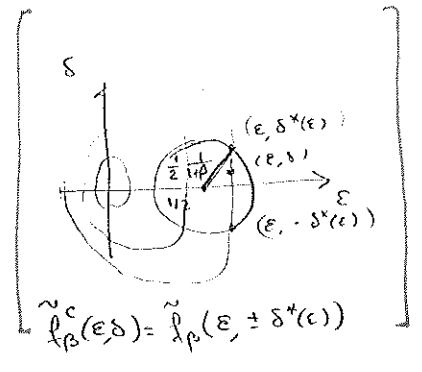 δ
(ε, δ*(ε))
(ε, δ)
1/2 1/(1+β)
ε
1/2
(ε, -δ*(ε))
f̃_β^c(ε,δ) = f̃_β(ε, ± δ*(ε))